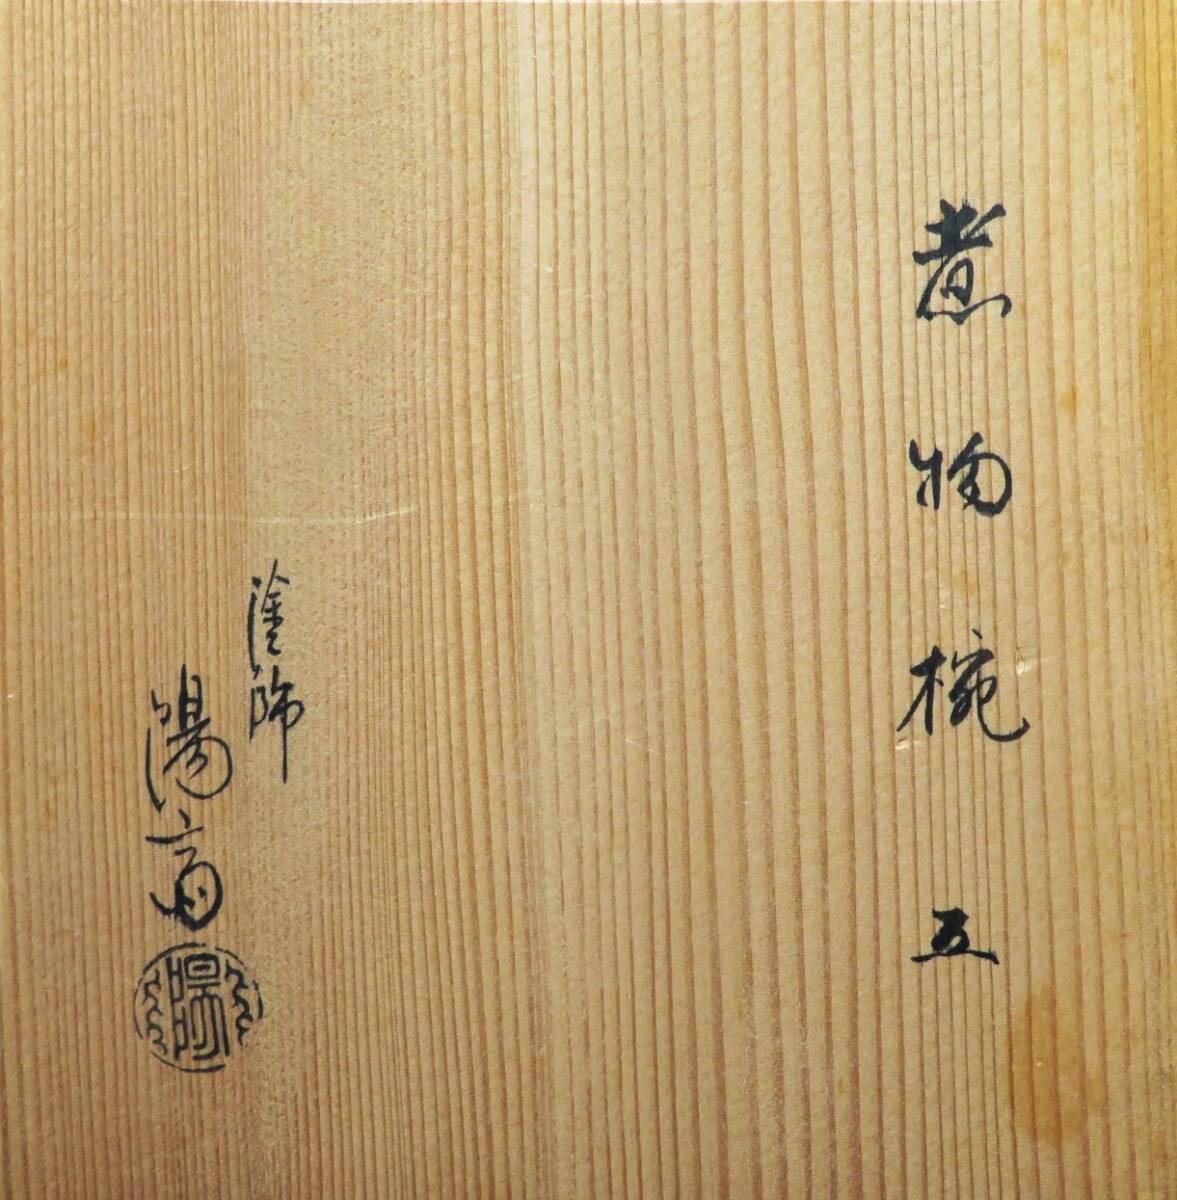 煮物椀 五
塗師
陽斎
陽